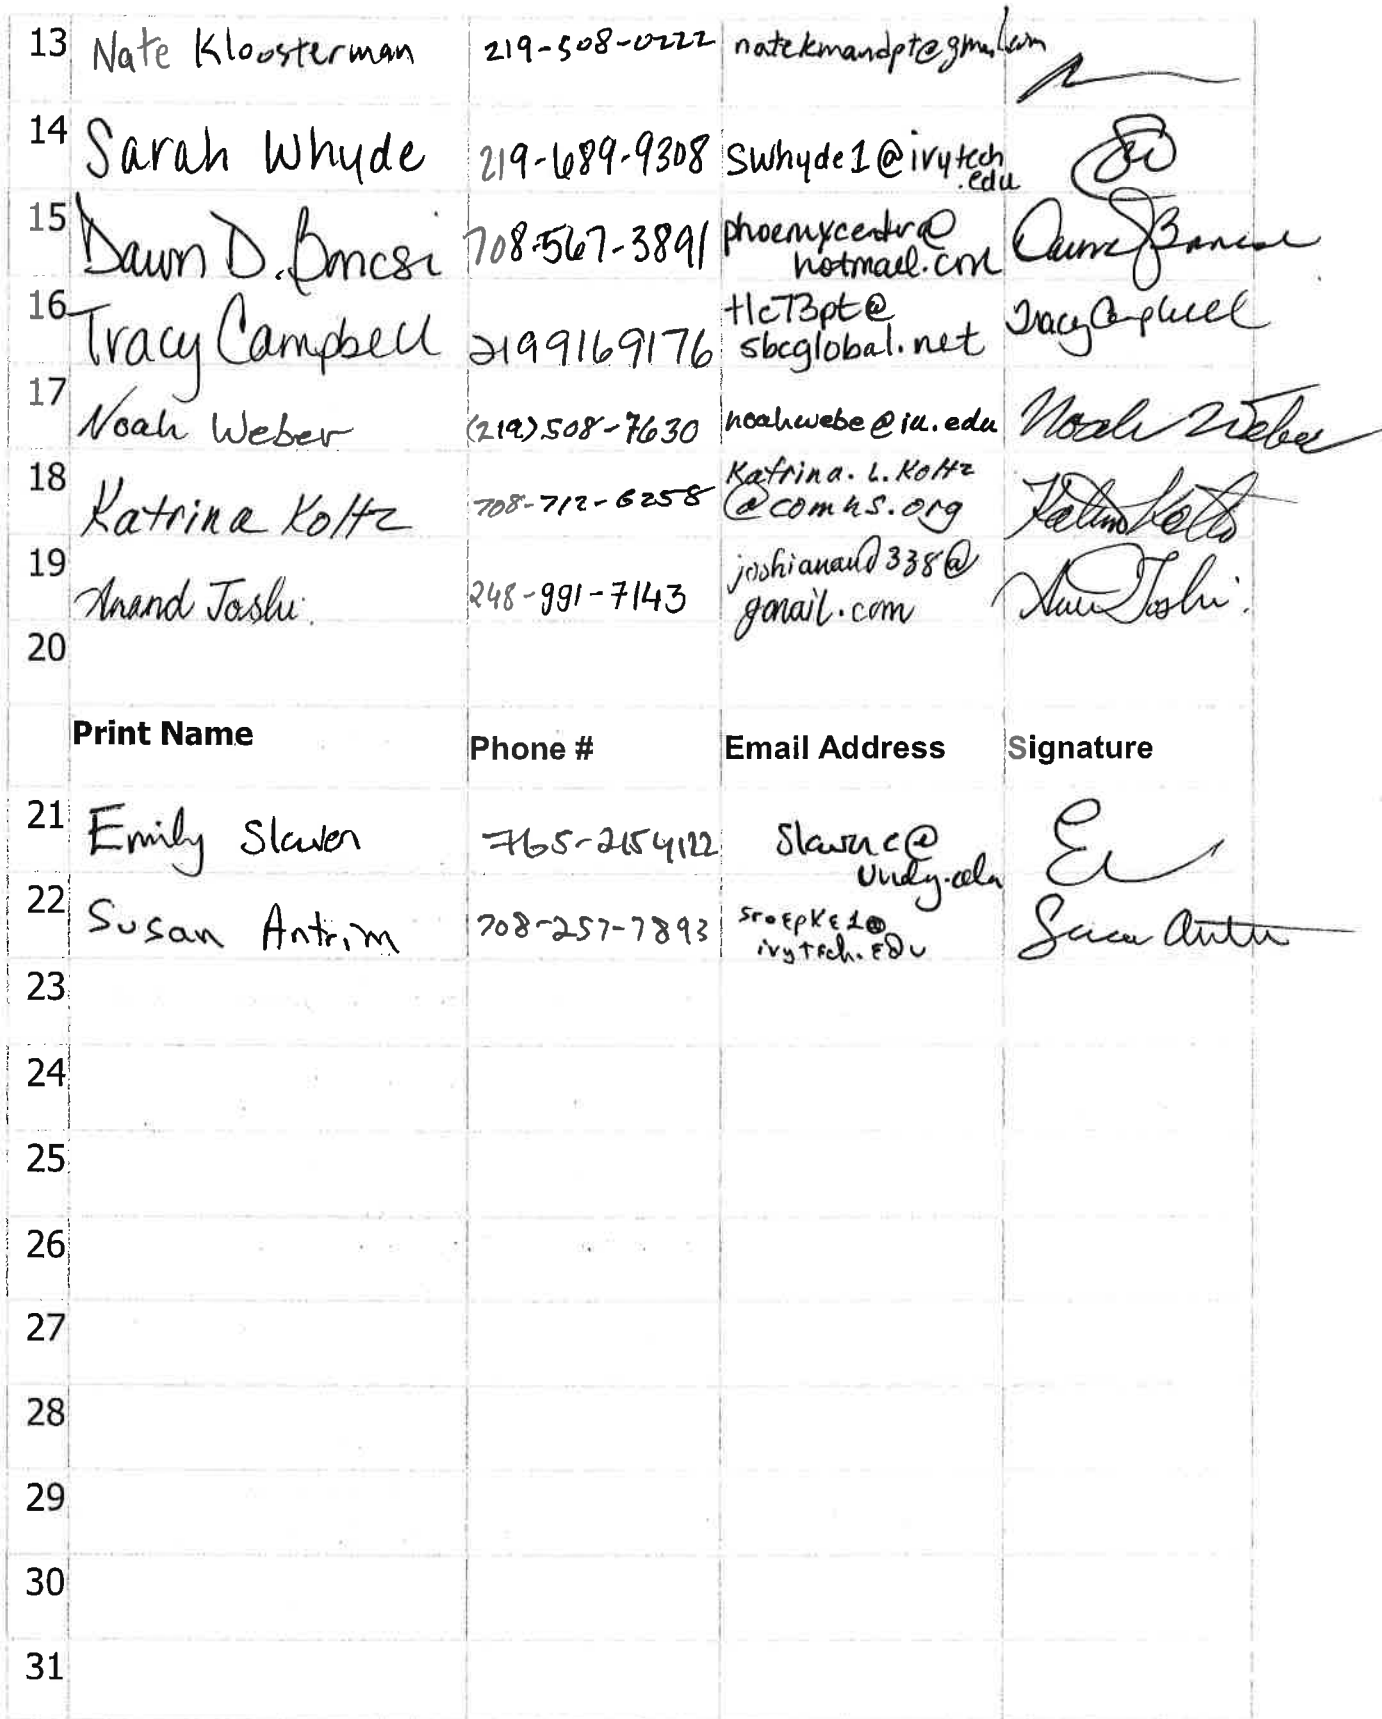 13 Nate Kloosterman 219-508-0222 natekmandpt@gmail.com
14 Sarah Whyde 219-689-9308 swhyde1@ivytech
.edu
15 Dawn D. Boncsi 708-567-3891
hotmail.com
16 Tracy Campbell 2199169176 tlcT3pt@
sbcglobal.net Tracy Campbell
17 Noah Weber (219) 508-7630 noahwebe@iu.edu Noah Weber
18 Katrina Koltz 708-712-6258 Katrina.L.Koltz
@comhs.org Katrina Koltz
19 Anand Joshi. 248-991-7143 joshianand338@
gmail.com
20
Print Name Phone # Email Address Signature
21 Emily Slaven 765-2154122
22 Susan Antrim 708-257-7893 sroepke1@
ivytech.edu
23
24
25
26
27
28
29
30
31